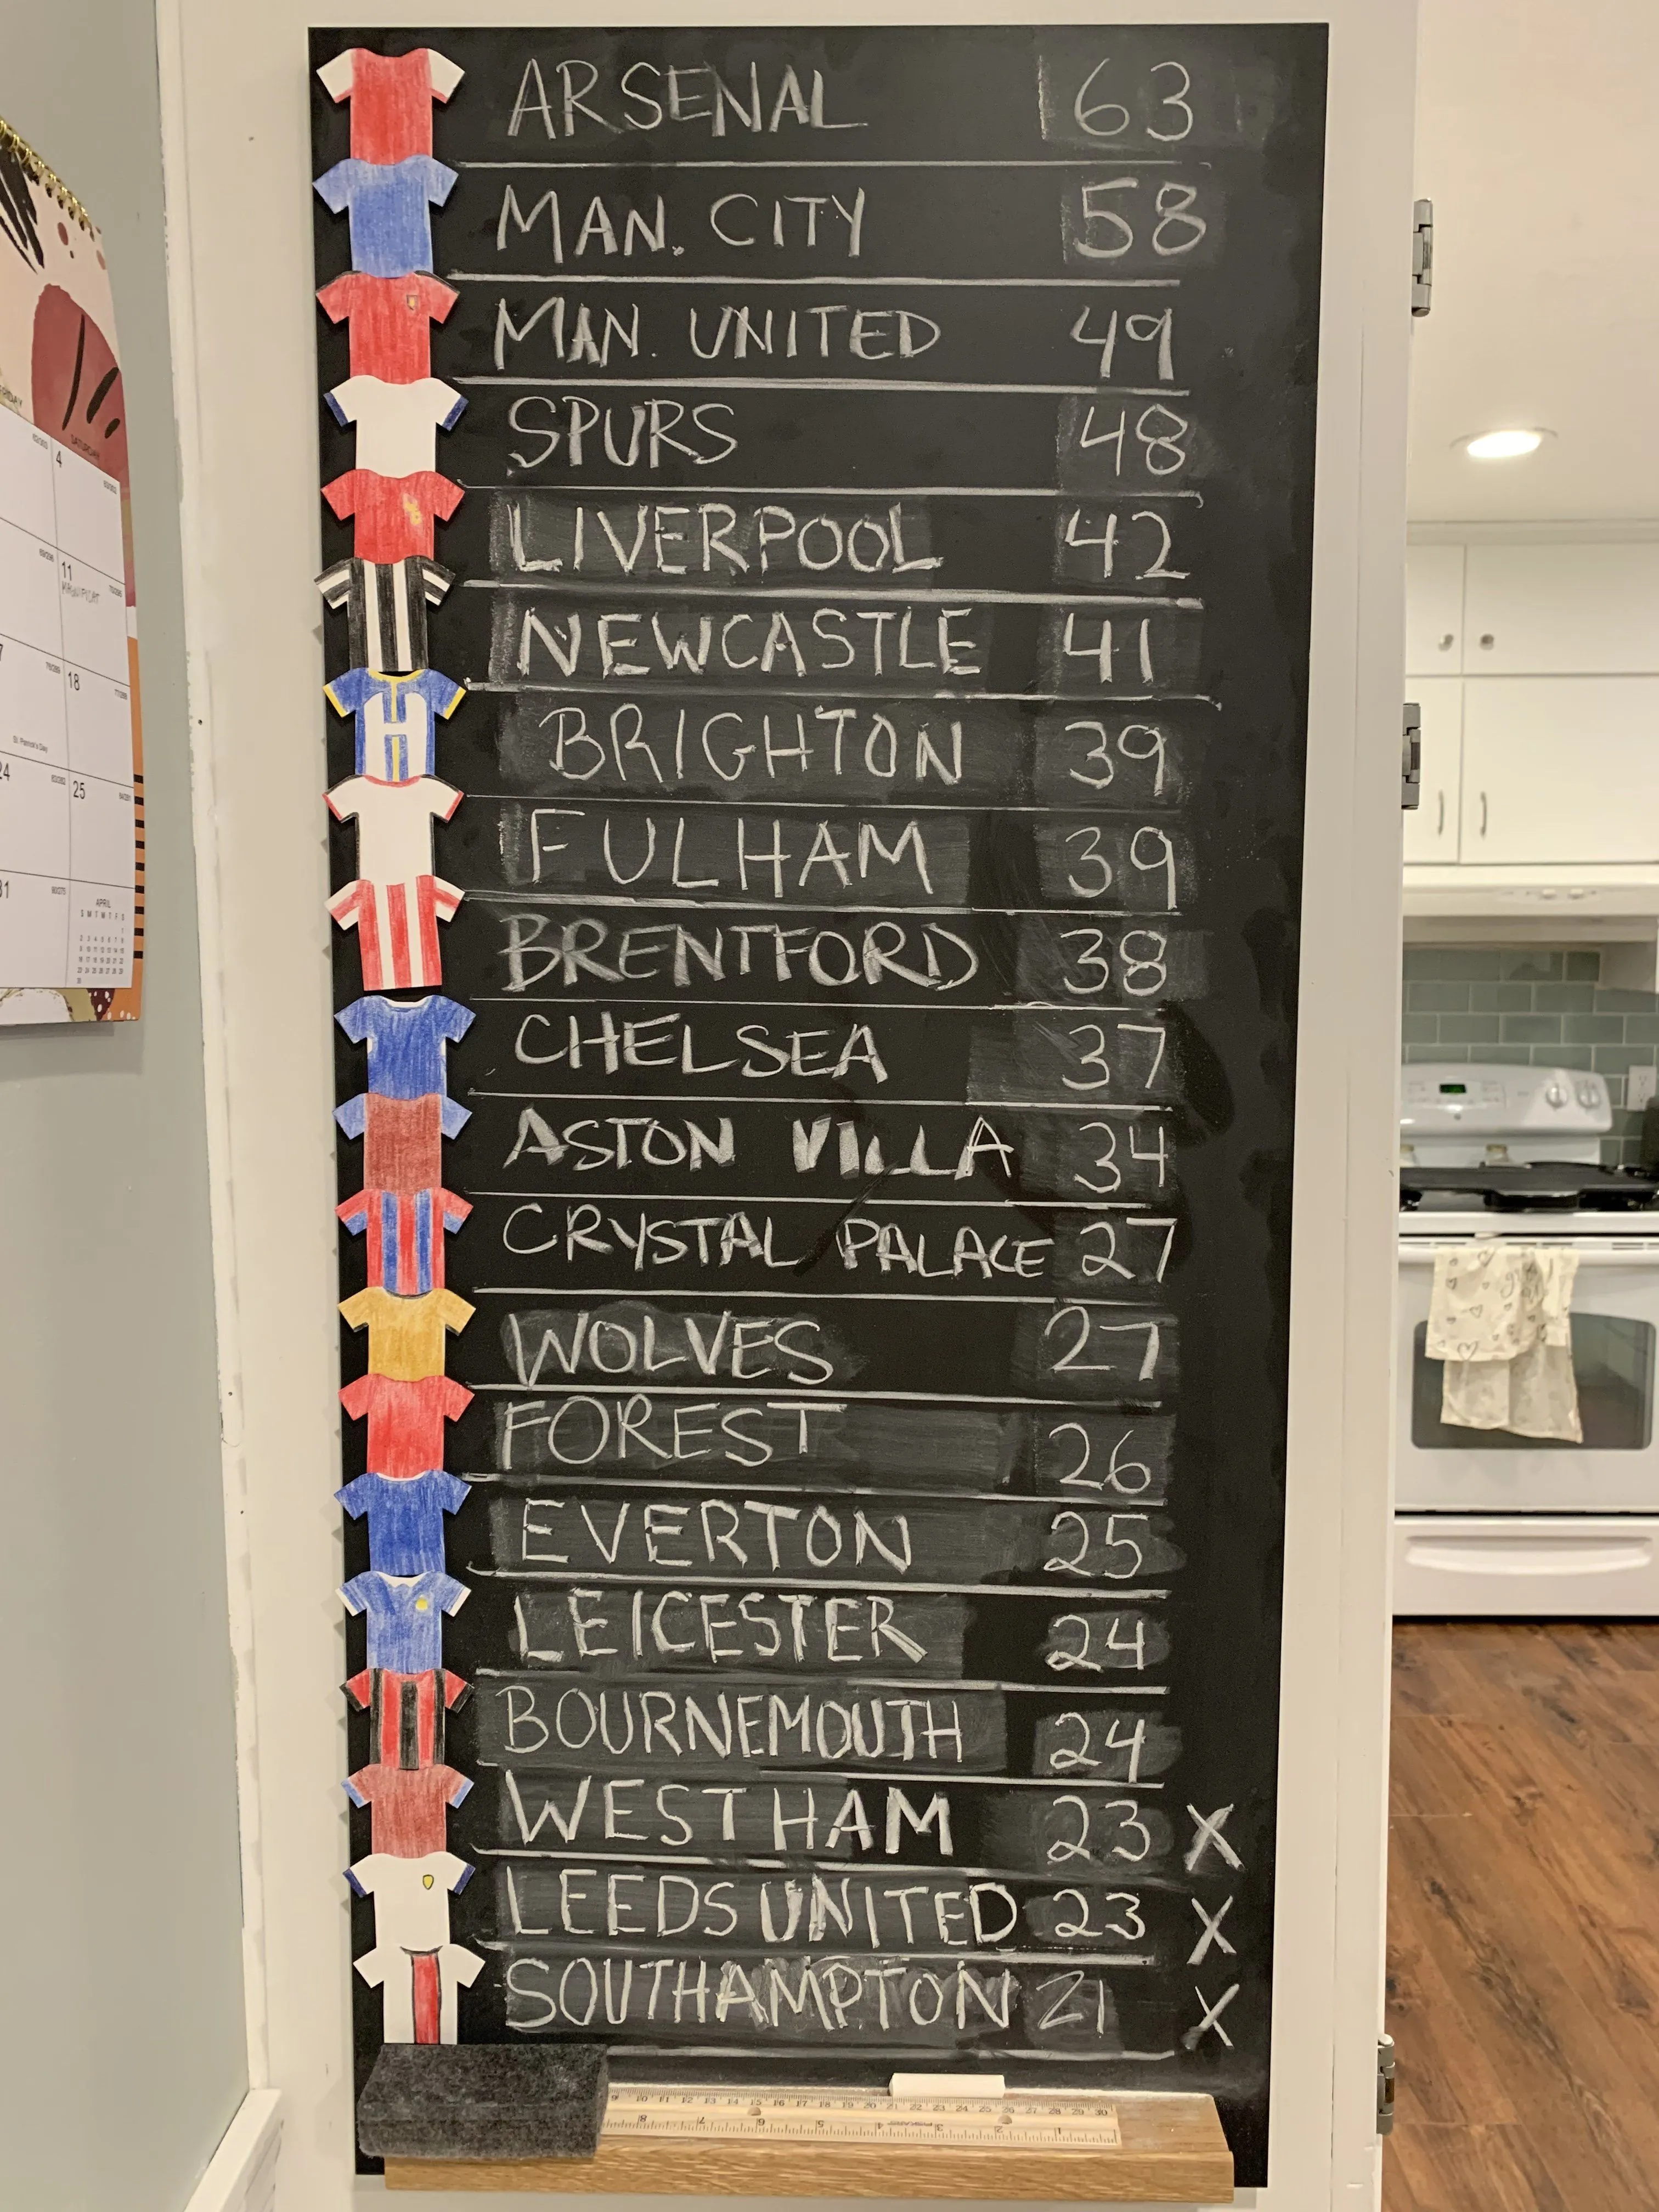 ARSENAL 63
MAN. CITY 58
MAN. UNITED 49
SPURS 48
LIVERPOOL 42
NEWCASTLE 41
BRIGHTON 39
FULHAM 39
BRENTFORD 38
CHELSEA 37
ASTON VILLA 34
CRYSTAL PALACE 27
WOLVES 27
FOREST 26
EVERTON 25
LEICESTER 24
BOURNEMOUTH 24
WEST HAM 23 X
LEEDS UNITED 23 X
SOUTHAMPTON 21 X
SATURDAY
4
11
18
St. Patrick's Day
24
25
31
APRIL
S M T W T F S